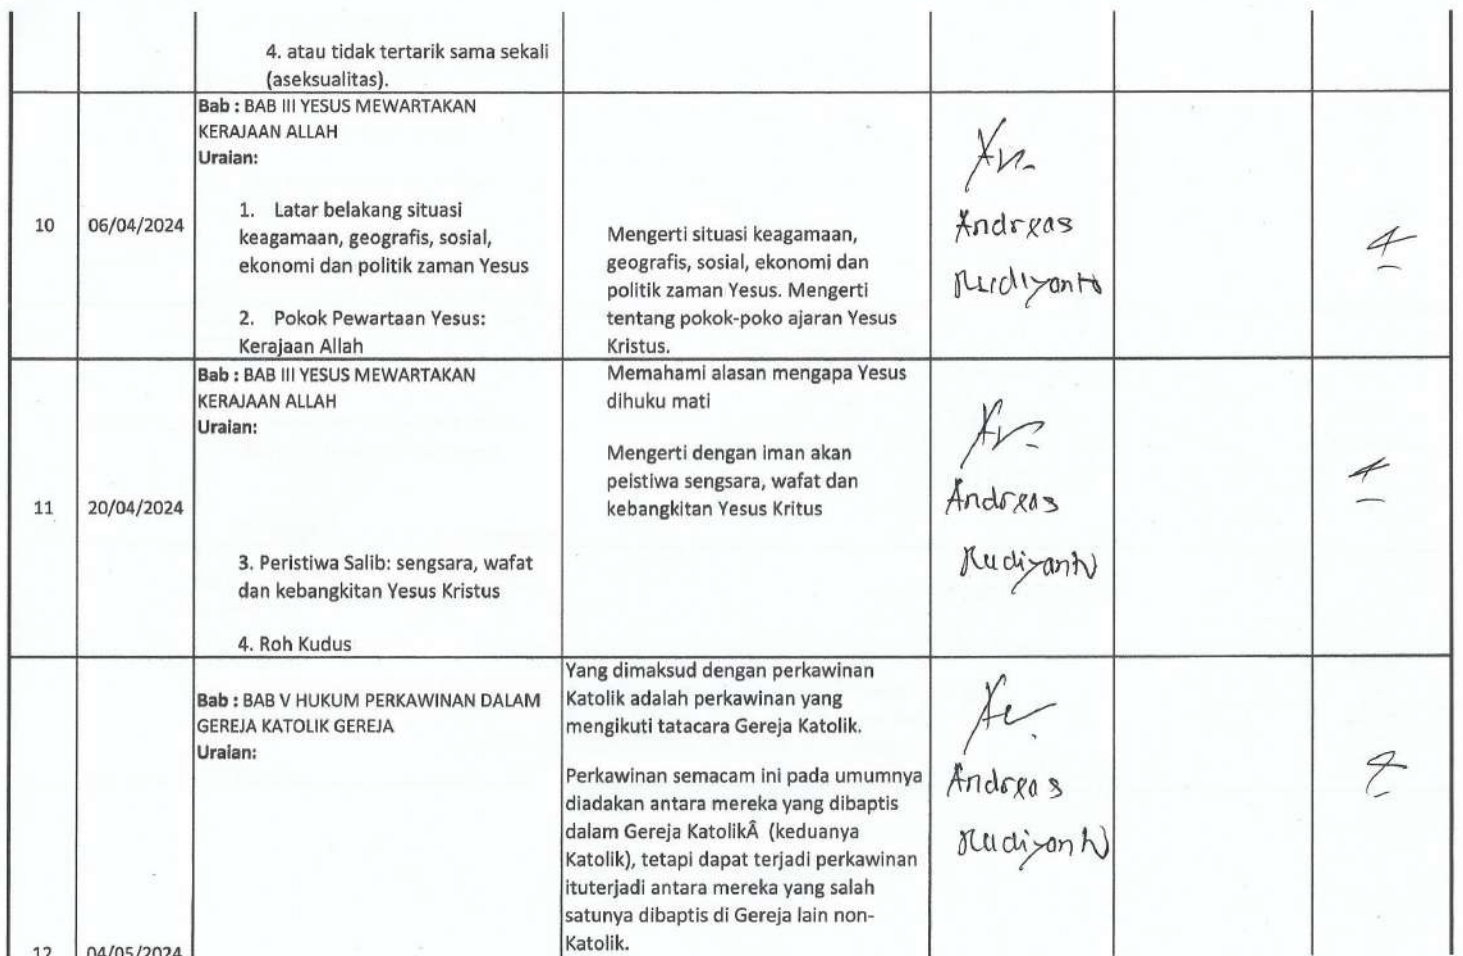 4. atau tidak tertarik sama sekali
(aseksualitas).
10
06/04/2024
Bab : BAB III YESUS MEWARTAKAN
KERAJAAN ALLAH
Uraian:
1. Latar belakang situasi
keagamaan, geografis, sosial,
ekonomi dan politik zaman Yesus
2. Pokok Pewartaan Yesus:
Kerajaan Allah
Mengerti situasi keagamaan,
geografis, sosial, ekonomi dan
politik zaman Yesus. Mengerti
tentang pokok-poko ajaran Yesus
Kristus.
Andreas
Rudiyanto
11
20/04/2024
Bab : BAB III YESUS MEWARTAKAN
KERAJAAN ALLAH
Uraian:
3. Peristiwa Salib: sengsara, wafat
dan kebangkitan Yesus Kristus
4. Roh Kudus
Memahami alasan mengapa Yesus
dihuku mati
Mengerti dengan iman akan
peistiwa sengsara, wafat dan
kebangkitan Yesus Kritus
Andreas
Rudiyanto
12
04/05/2024
Bab : BAB V HUKUM PERKAWINAN DALAM
GEREJA KATOLIK GEREJA
Uraian:
Yang dimaksud dengan perkawinan
Katolik adalah perkawinan yang
mengikuti tatacara Gereja Katolik.
Perkawinan semacam ini pada umumnya
diadakan antara mereka yang dibaptis
dalam Gereja KatolikÂ (keduanya
Katolik), tetapi dapat terjadi perkawinan
ituterjadi antara mereka yang salah
satunya dibaptis di Gereja lain non-
Katolik.
Andreas
Rudiyanto